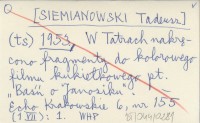 [SIEMIANOWSKI Tadeusz]
(ts) 1953, W Tatrach nakrę-
cono fragmenty do kolorowego
filmu kukiełkowego pt.
"Baśń o Janosiku".
Echo Krakowskie 6, nr 155
(1 VII): 1. WHP